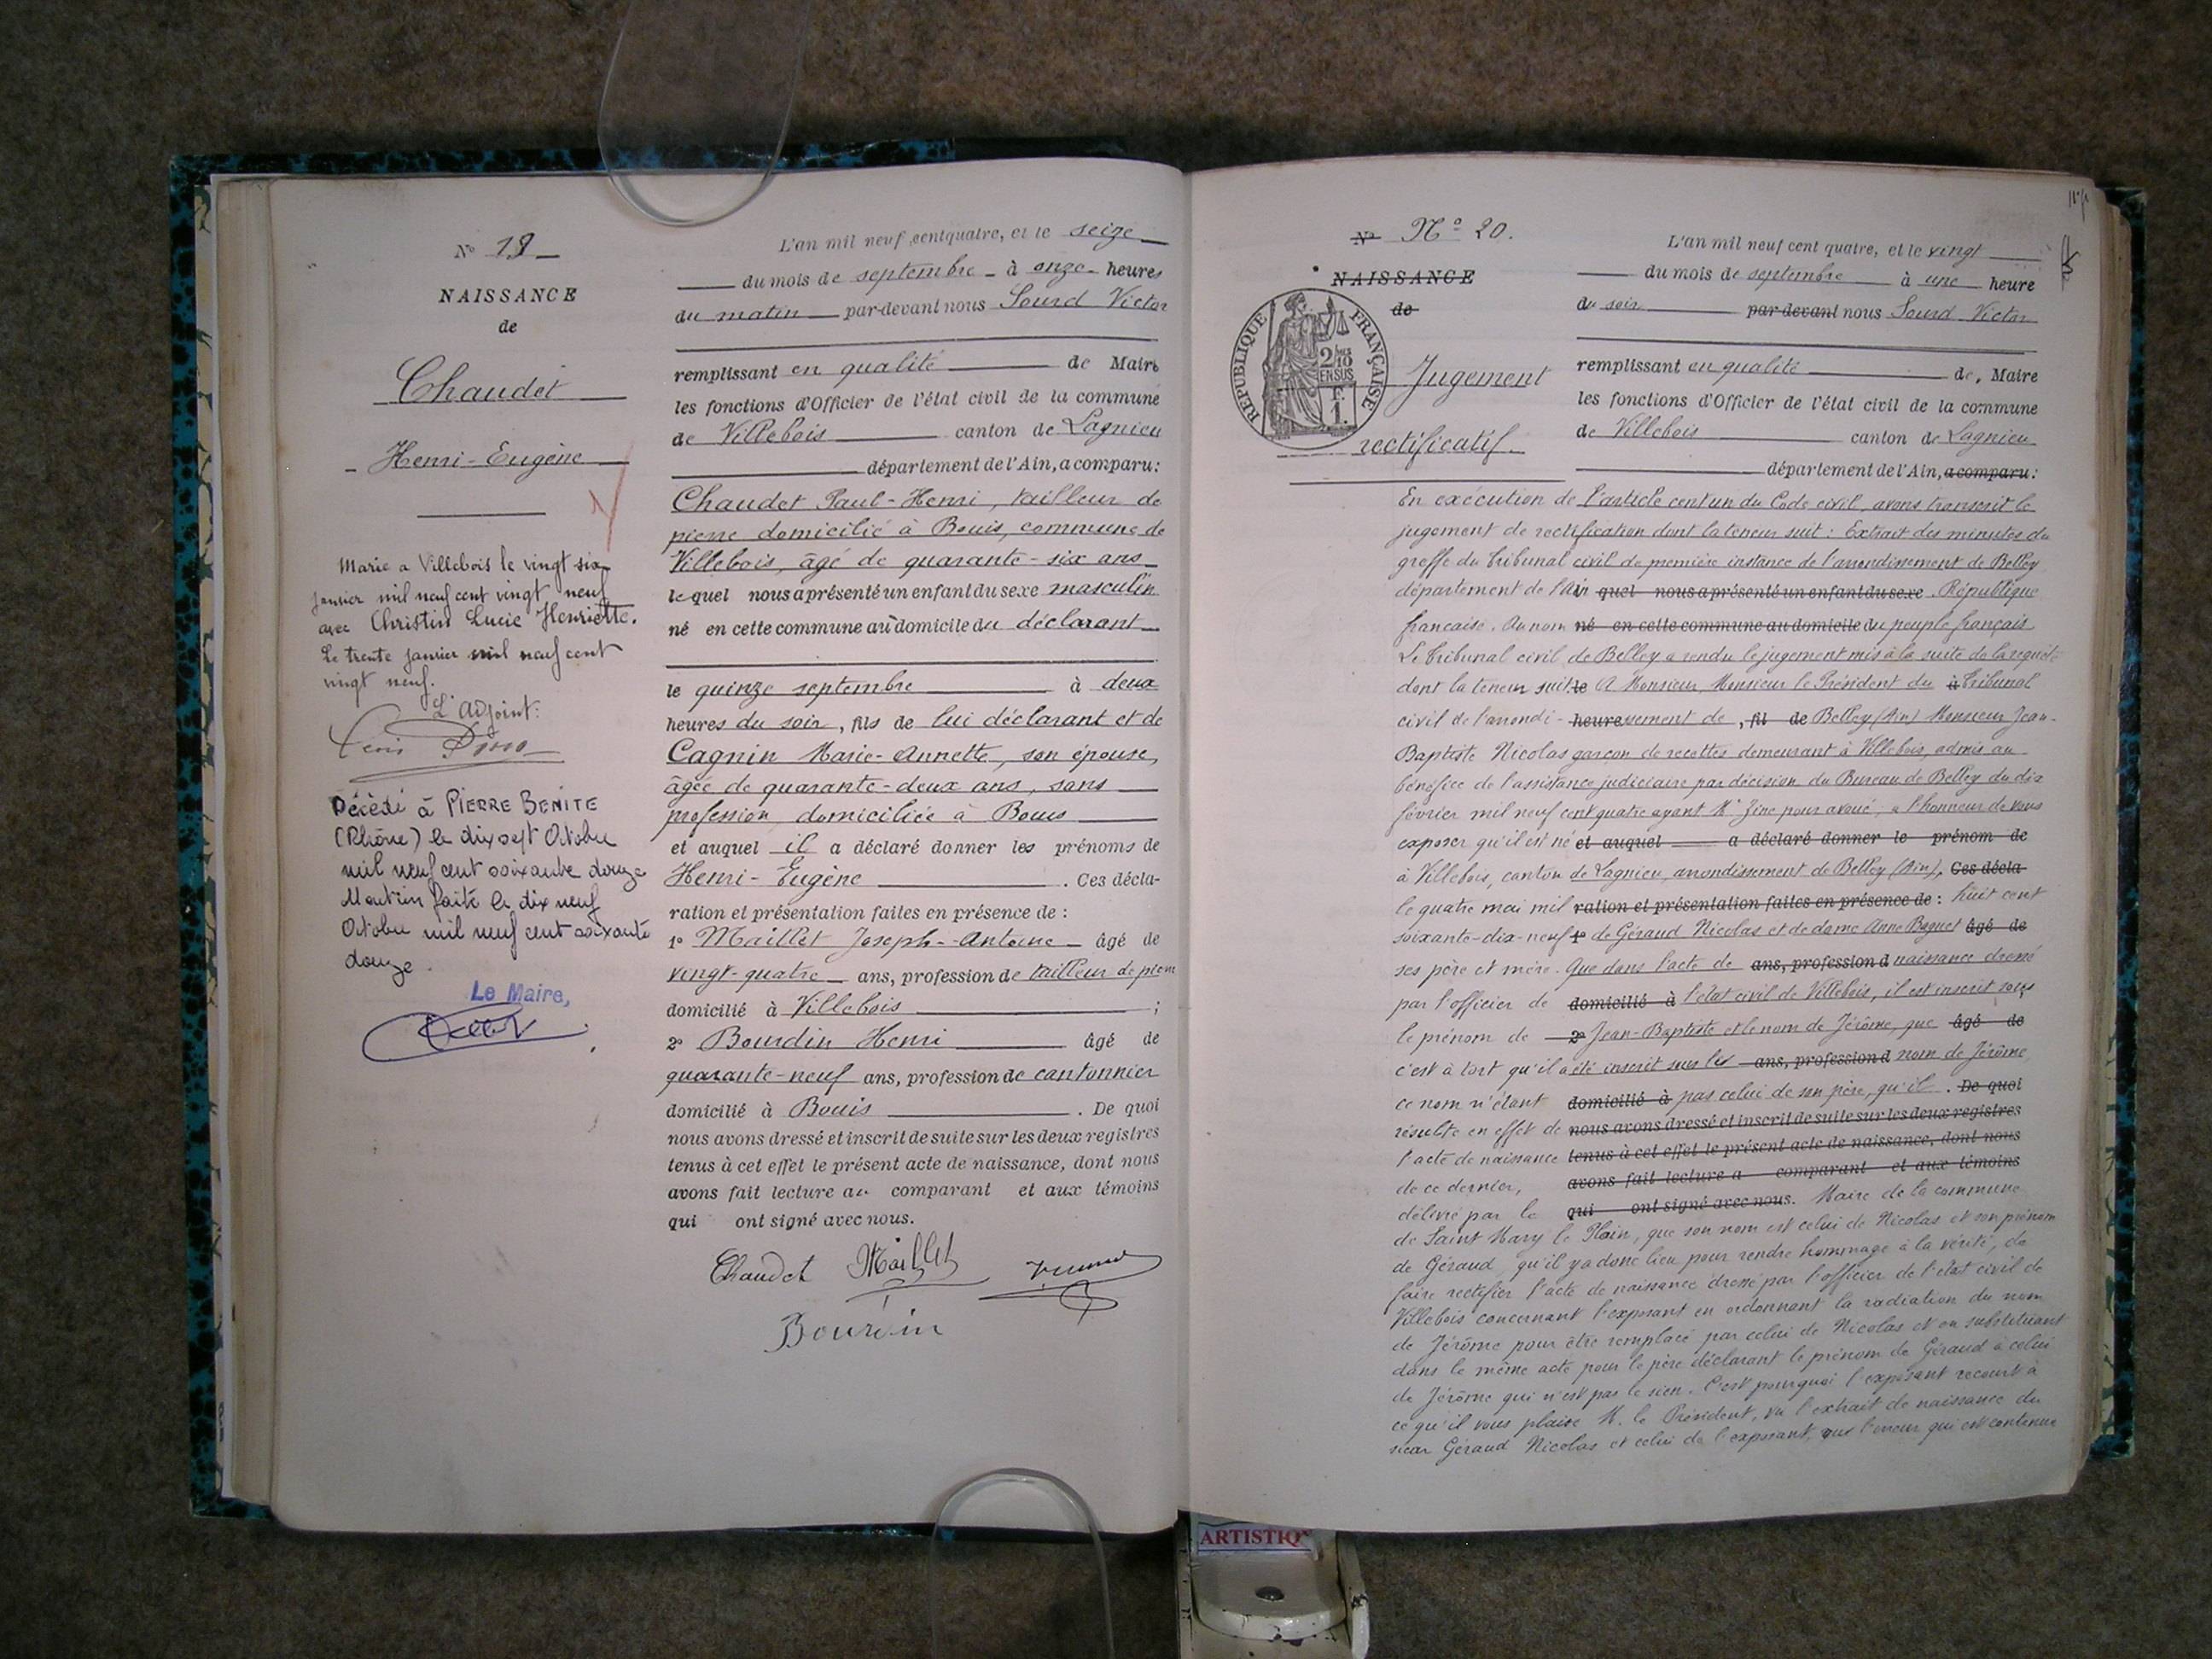 Nº 19
NAISSANCE
de
Chaudet
Henri-Eugène
Marié a Villebois le vingt six
janvier mil neuf cent vingt neuf
avec Christin Lucie Henriette.
Le trente janvier mil neuf cent
vingt neuf.
L'adjoint:
Décédé à PIERRE BENITE
(Rhône) le dix sept Octobre
mil neuf cent soixante douze
Mention faite le dix neuf
Octobre mil neuf cent soixante
douze.
Le Maire,
L'an mil neuf cent quatre, et le seize
du mois de septembre à onze heures
du matin par-devant nous Sourd Victor
remplissant en qualité de Maire
les fonctions d'Officier de l'état civil de la commune
de Villebois canton de Lagnieu
département de l'Ain, a comparu:
Chaudet Paul-Henri, tailleur de
pierre domicilié à Bouis, commune de
Villebois, âgé de quarante-six ans
lequel nous a présenté un enfant du sexe masculin
né en cette commune au domicile du déclarant
le quinze septembre à deux
heures du soir, fils de lui déclarant et de
Cagnin Marie-Annette, son épouse,
âgée de quarante-deux ans, sans
profession domiciliée à Bouis
et auquel il a déclaré donner les prénoms de
Henri-Eugène. Ces décla-
ration et présentation faites en présence de:
1º Maillet Joseph-Antoine âgé de
vingt-quatre ans, profession de tailleur de pierre
domicilié à Villebois;
2º Bourdin Henri âgé de
quarante-neuf ans, profession de cantonnier
domicilié à Bouis. De quoi
nous avons dressé et inscrit de suite sur les deux registres
tenus à cet effet le présent acte de naissance, dont nous
avons fait lecture au comparant et aux témoins
qui ont signé avec nous.
Chaudet Maillet
Bourdin
Nº Nº 20.
NAISSANCE
de
REPUBLIQUE FRANÇAISE
2/10
EN SUS
F.
1.
Jugement
rectificatif.
L'an mil neuf cent quatre, et le vingt
du mois de septembre à une heure
du soir par-devant nous Sourd Victor
remplissant en qualité de, Maire
les fonctions d'Officier de l'état civil de la commune
de Villebois canton de Lagnieu
département de l'Ain, a comparu:
En exécution de l'article cent un du Code civil, avons transcrit le
jugement de rectification dont la teneur suit: Extrait des minutes du
greffe du Tribunal civil de première instance de l'arrondissement de Belley
département de l'Ain quel nous a présenté un enfant du sexe République
française. Au nom né en cette commune au domicile du peuple français
Le Tribunal civil de Belley a rendu le jugement mis à la suite de la requête
dont la teneur suit. le A Monsieur, Monsieur le Président du à Tribunal
civil de l'arrondi- heures sement de, fil de Belley (Ain) Monsieur Jean-
Baptiste Nicolas garçon de recettes demeurant à Villebois, admis au
bénéfice de l'assistance judiciaire par décision du Bureau de Belley du dix
février mil neuf cent quatre ayant Mᵉ pour avoué; a l'honneur de vous
exposer qu'il est né et auquel a déclaré donner le prénom de
à Villebois, canton de Lagnieu, arrondissement de Belley (Ain), Ces décla-
le quatre mai mil ration et présentation faites en présence de: huit cent
soixante-dix-neuf 1º de Géraud Nicolas et de dame Anne âgé de
ses père et mère. Que dans l'acte de ans, profession d naissance dressé
par l'officier de domicilié à l'état civil de Villebois, il est inscrit sous
le prénom de 2º Jean-Baptiste et le nom de Jérôme, que âgé de
c'est à tort qu'il a été inscrit sous le ans, profession d nom de Jérôme
ce nom n'étant domicilié à pas celui de son père, qu'il. De quoi
résulte en effet de nous avons dressé et inscrit de suite sur les deux registres
l'acte de naissance tenus à cet effet le présent acte de naissance, dont nous
de ce dernier, avons fait lecture a comparant et aux témoins
délivré par le qui ont signé avec nous. Maire de la commune
de Saint Mary le Plain, que son nom est celui de Nicolas et son prénom
de Géraud, qu'il y a donc lieu pour rendre hommage à la vérité, de
faire rectifier l'acte de naissance dressé par l'officier de l'état civil de
Villebois concernant l'exposant en ordonnant la radiation du nom
de Jérôme pour être remplacé par celui de Nicolas et en substituant
dans le même acte pour le père déclarant le prénom de Géraud à celui
de Jérôme qui n'est pas le sien. C'est pourquoi l'exposant recourt à
ce qu'il vous plaise M. le Président, vu l'extrait de naissance du
sieur Géraud Nicolas et celui de l'exposant, vue l'erreur qui est contenue
ARTISTIQ